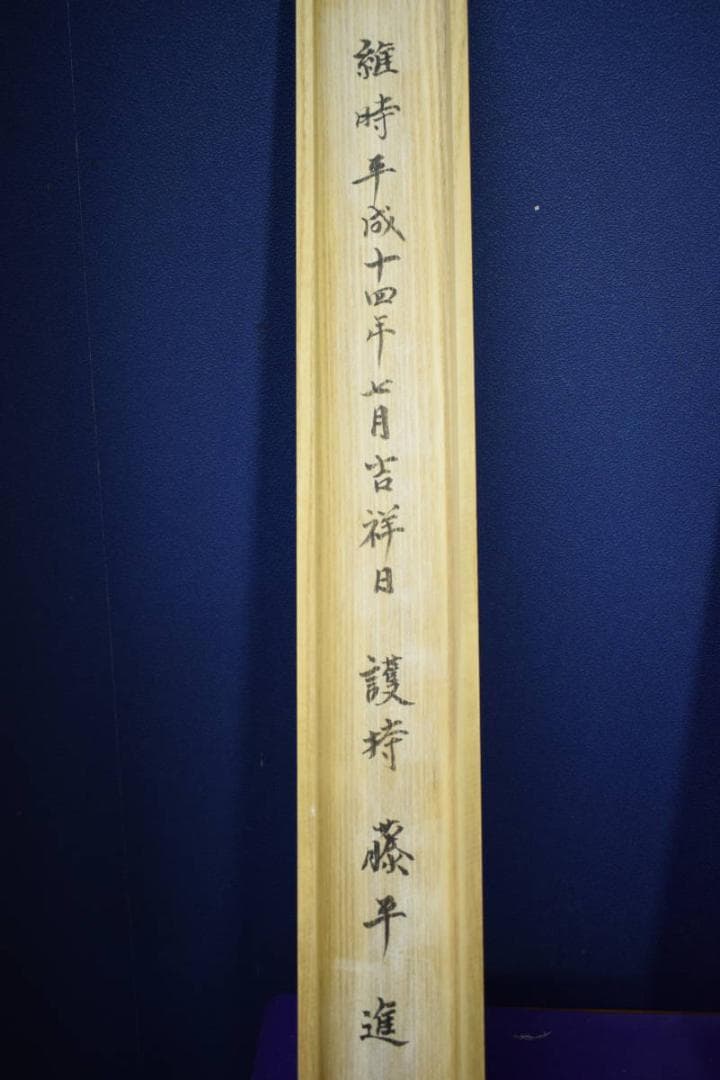 維時平成十四年七月吉祥日 護持 藤平 進